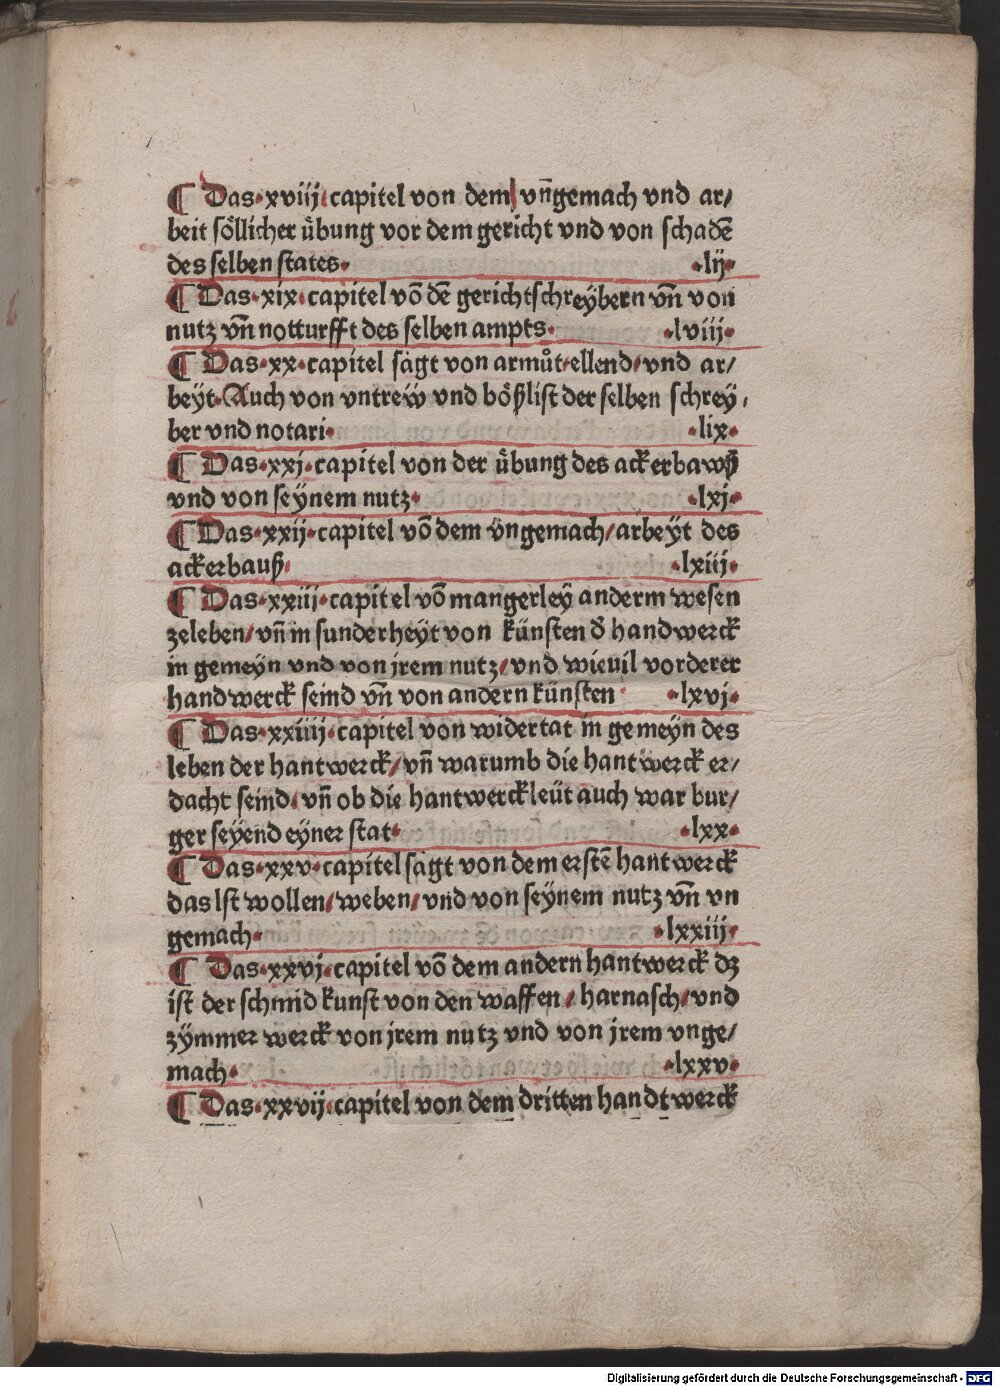 ¶ Das·xviij·capitel von dem vn̄gemach vnd ar/
beit söllicher übung vor dem gericht vnd von schadē
des selben states· ·lij·
¶ Das·xix·capitel võ dē gerichtschreÿbern vn̄ von
nutz vn̄ notturfft des selben ampts· ·lviij·
¶ Das·xx·capitel sagt von armůt/ellend/vnd ar/
beÿt·Auch von vntreẅ vnd bößlist der selben schreÿ/
ber vnd notari· ·lix·
¶ Das·xxj·capitel von der übung des ackerbawß
vnd von seÿnem nutz· ·lxj·
¶ Das·xxij·capitel võ dem vngemach/arbeÿt des
ackerbauß· ·lxiij·
¶ Das·xxiij·capitel võ mangerleÿ anderm wesen
zeleben/vn̄ in sunderheÿt von künsten d̓ handwerck
in gemeÿn vnd von jrem nutz/vnd wieuil vorderer
handwerck seind vn̄ von andern künsten ·lxvj·
¶ Das·xxiiij·capitel von widertat in gemeÿn des
leben der hantwerck/vn̄ warumb die hantwerck er/
dacht seind·vn̄ ob die hantwerckleüt auch war bur/
ger seÿend eÿner stat· ·lxx·
¶ Das·xxv·capitel sagt von dem erstē hantwerck
das Ist wollen/weben/vnd von seÿnem nutz vn̄ vn
gemach· ·lxxiij·
¶ Das·xxvj·capitel võ dem andern hantwerck dz
ist der schmid kunst von den waffen/harnasch/vnd
zÿmmer werck von jrem nutz vnd von jrem vnge/
mach· ·lxxv·
¶ Das·xxvij·capitel von dem dritten handtwerck
Digitalisierung gefördert durch die Deutsche Forschungsgemeinschaft - DFG